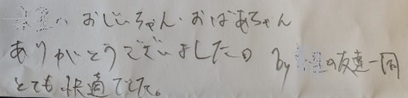 おじいちゃん・おばあちゃん
ありがとうございました。 by の友達一同
とても快適でした。